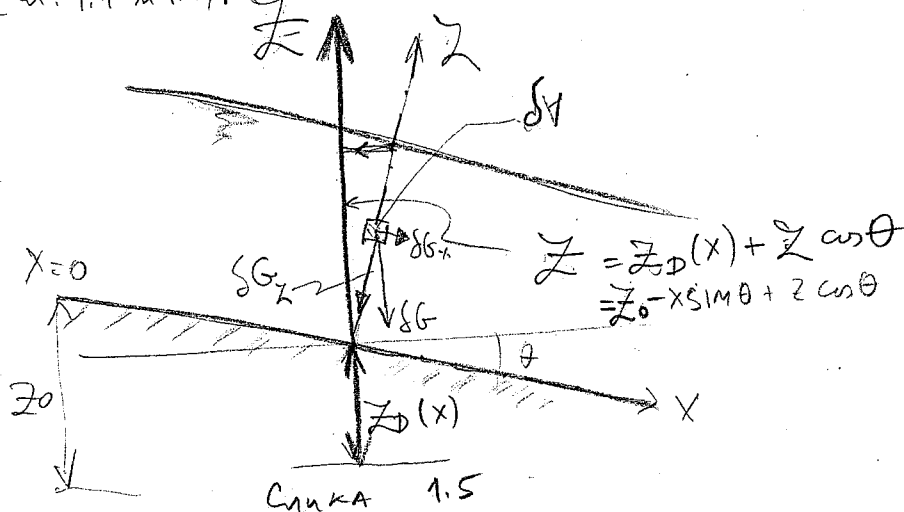 Z
Z
δV
δGx
Z = Z_D(x) + Z cosθ
= Z₀ - x sinθ + z cosθ
X=0
δG_Z
δG
θ
Z₀
Z_D(x)
X
Слика 1.5